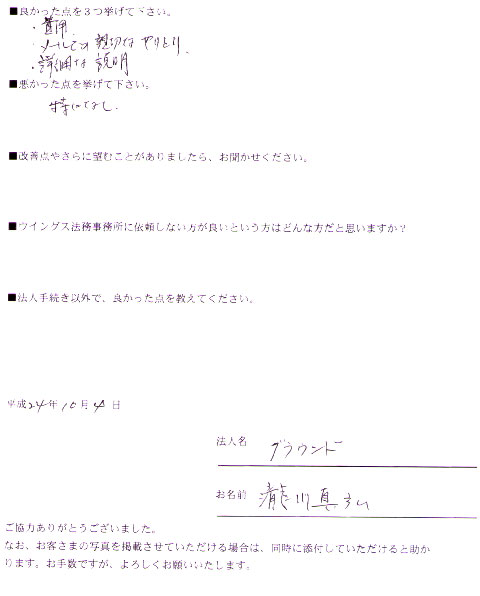 ■良かった点を3つ挙げて下さい。
・費用
・メールでの親切なやりとり
・詳細な説明
■悪かった点を挙げて下さい。
特になし
■改善点やさらに望むことがありましたら、お聞かせください。
■ウイングス法務事務所に依頼しない方が良いという方はどんな方だと思いますか？
■法人手続き以外で、良かった点を教えてください。
平成24年10月4日
法人名 グラウンド
お名前 瀧川真
ご協力ありがとうございました。
なお、お客さまの写真を掲載させていただける場合は、同時に添付していただけると助か
ります。お手数ですが、よろしくお願いいたします。